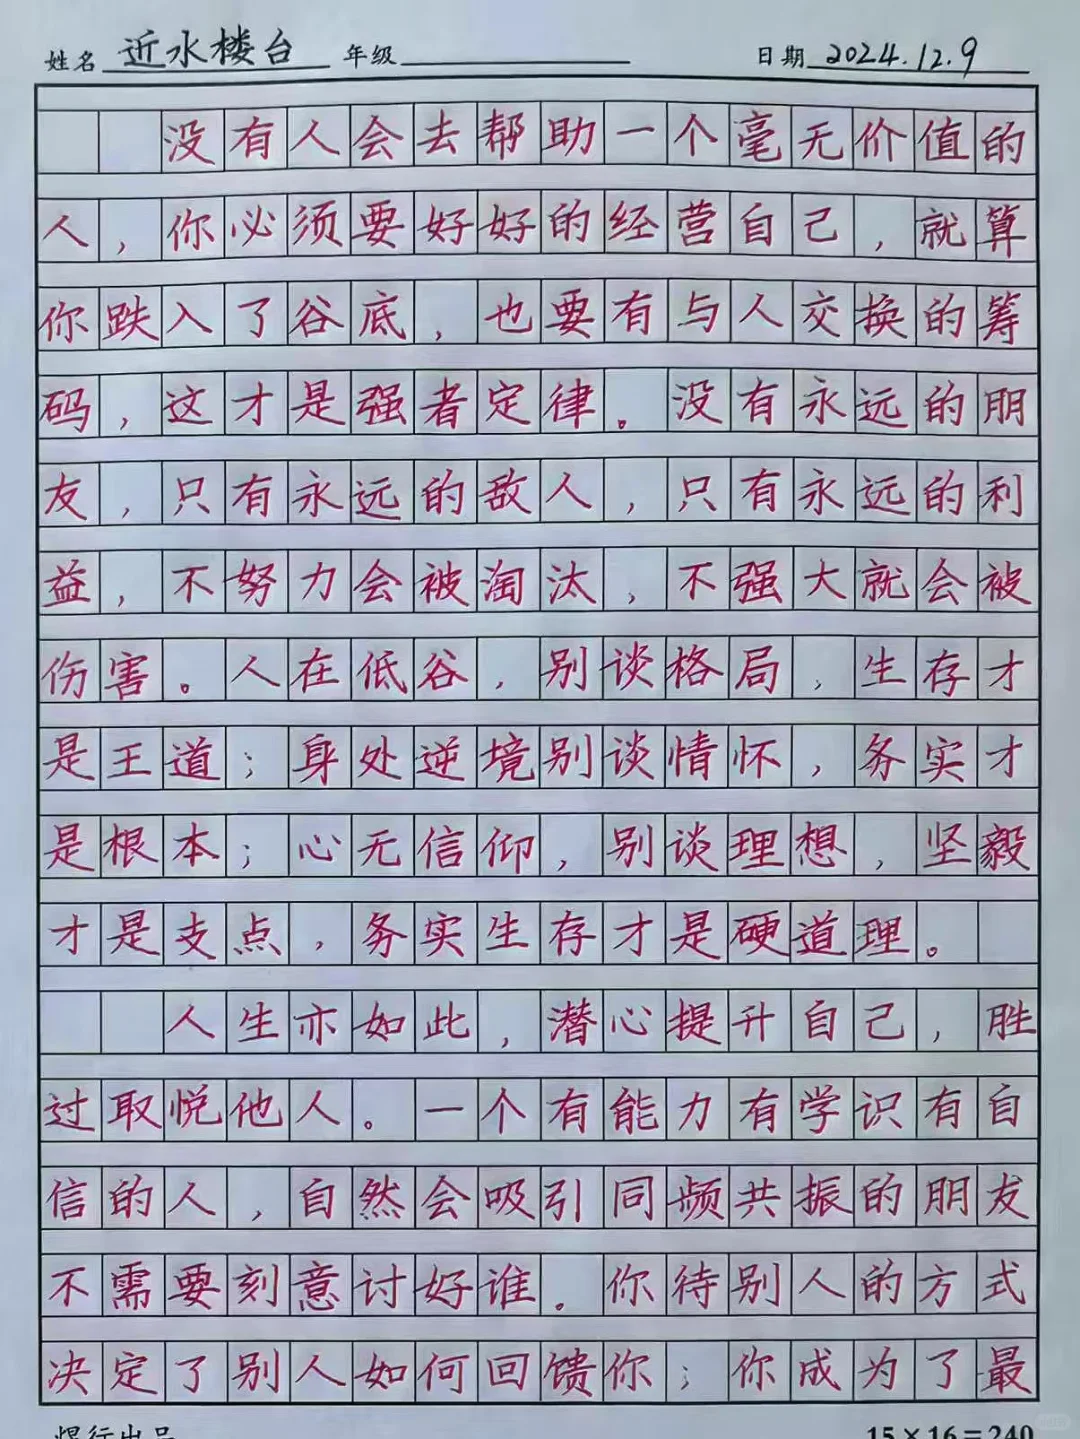 姓名 近水楼台 年级 日期 2024.12.9
没有人会去帮助一个毫无价值的
人，你必须要好好的经营自己，就算
你跌入了谷底，也要有与人交换的筹
码，这才是强者定律。没有永远的朋
友，只有永远的敌人，只有永远的利
益，不努力会被淘汰，不强大就会被
伤害。人在低谷，别谈格局，生存才
是王道；身处逆境别谈情怀，务实才
是根本；心无信仰，别谈理想，坚毅
才是支点，务实生存才是硬道理。
人生亦如此，潜心提升自己，胜
过取悦他人。一个有能力有学识有自
信的人，自然会吸引同频共振的朋友
不需要刻意讨好谁。你待别人的方式
决定了别人如何回馈你；你成为了最
15×16=240